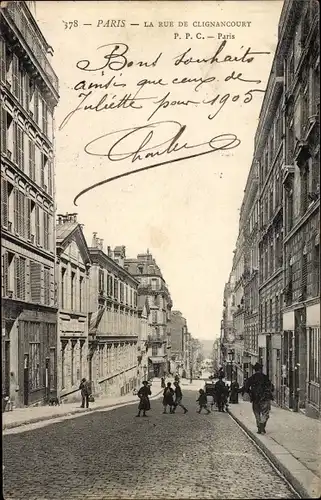 378 - PARIS - LA RUE DE CLIGNANCOURT
P. P. C. - Paris
Bons souhaits
ainsi que ceux de
Juliette pour 1905
Charles